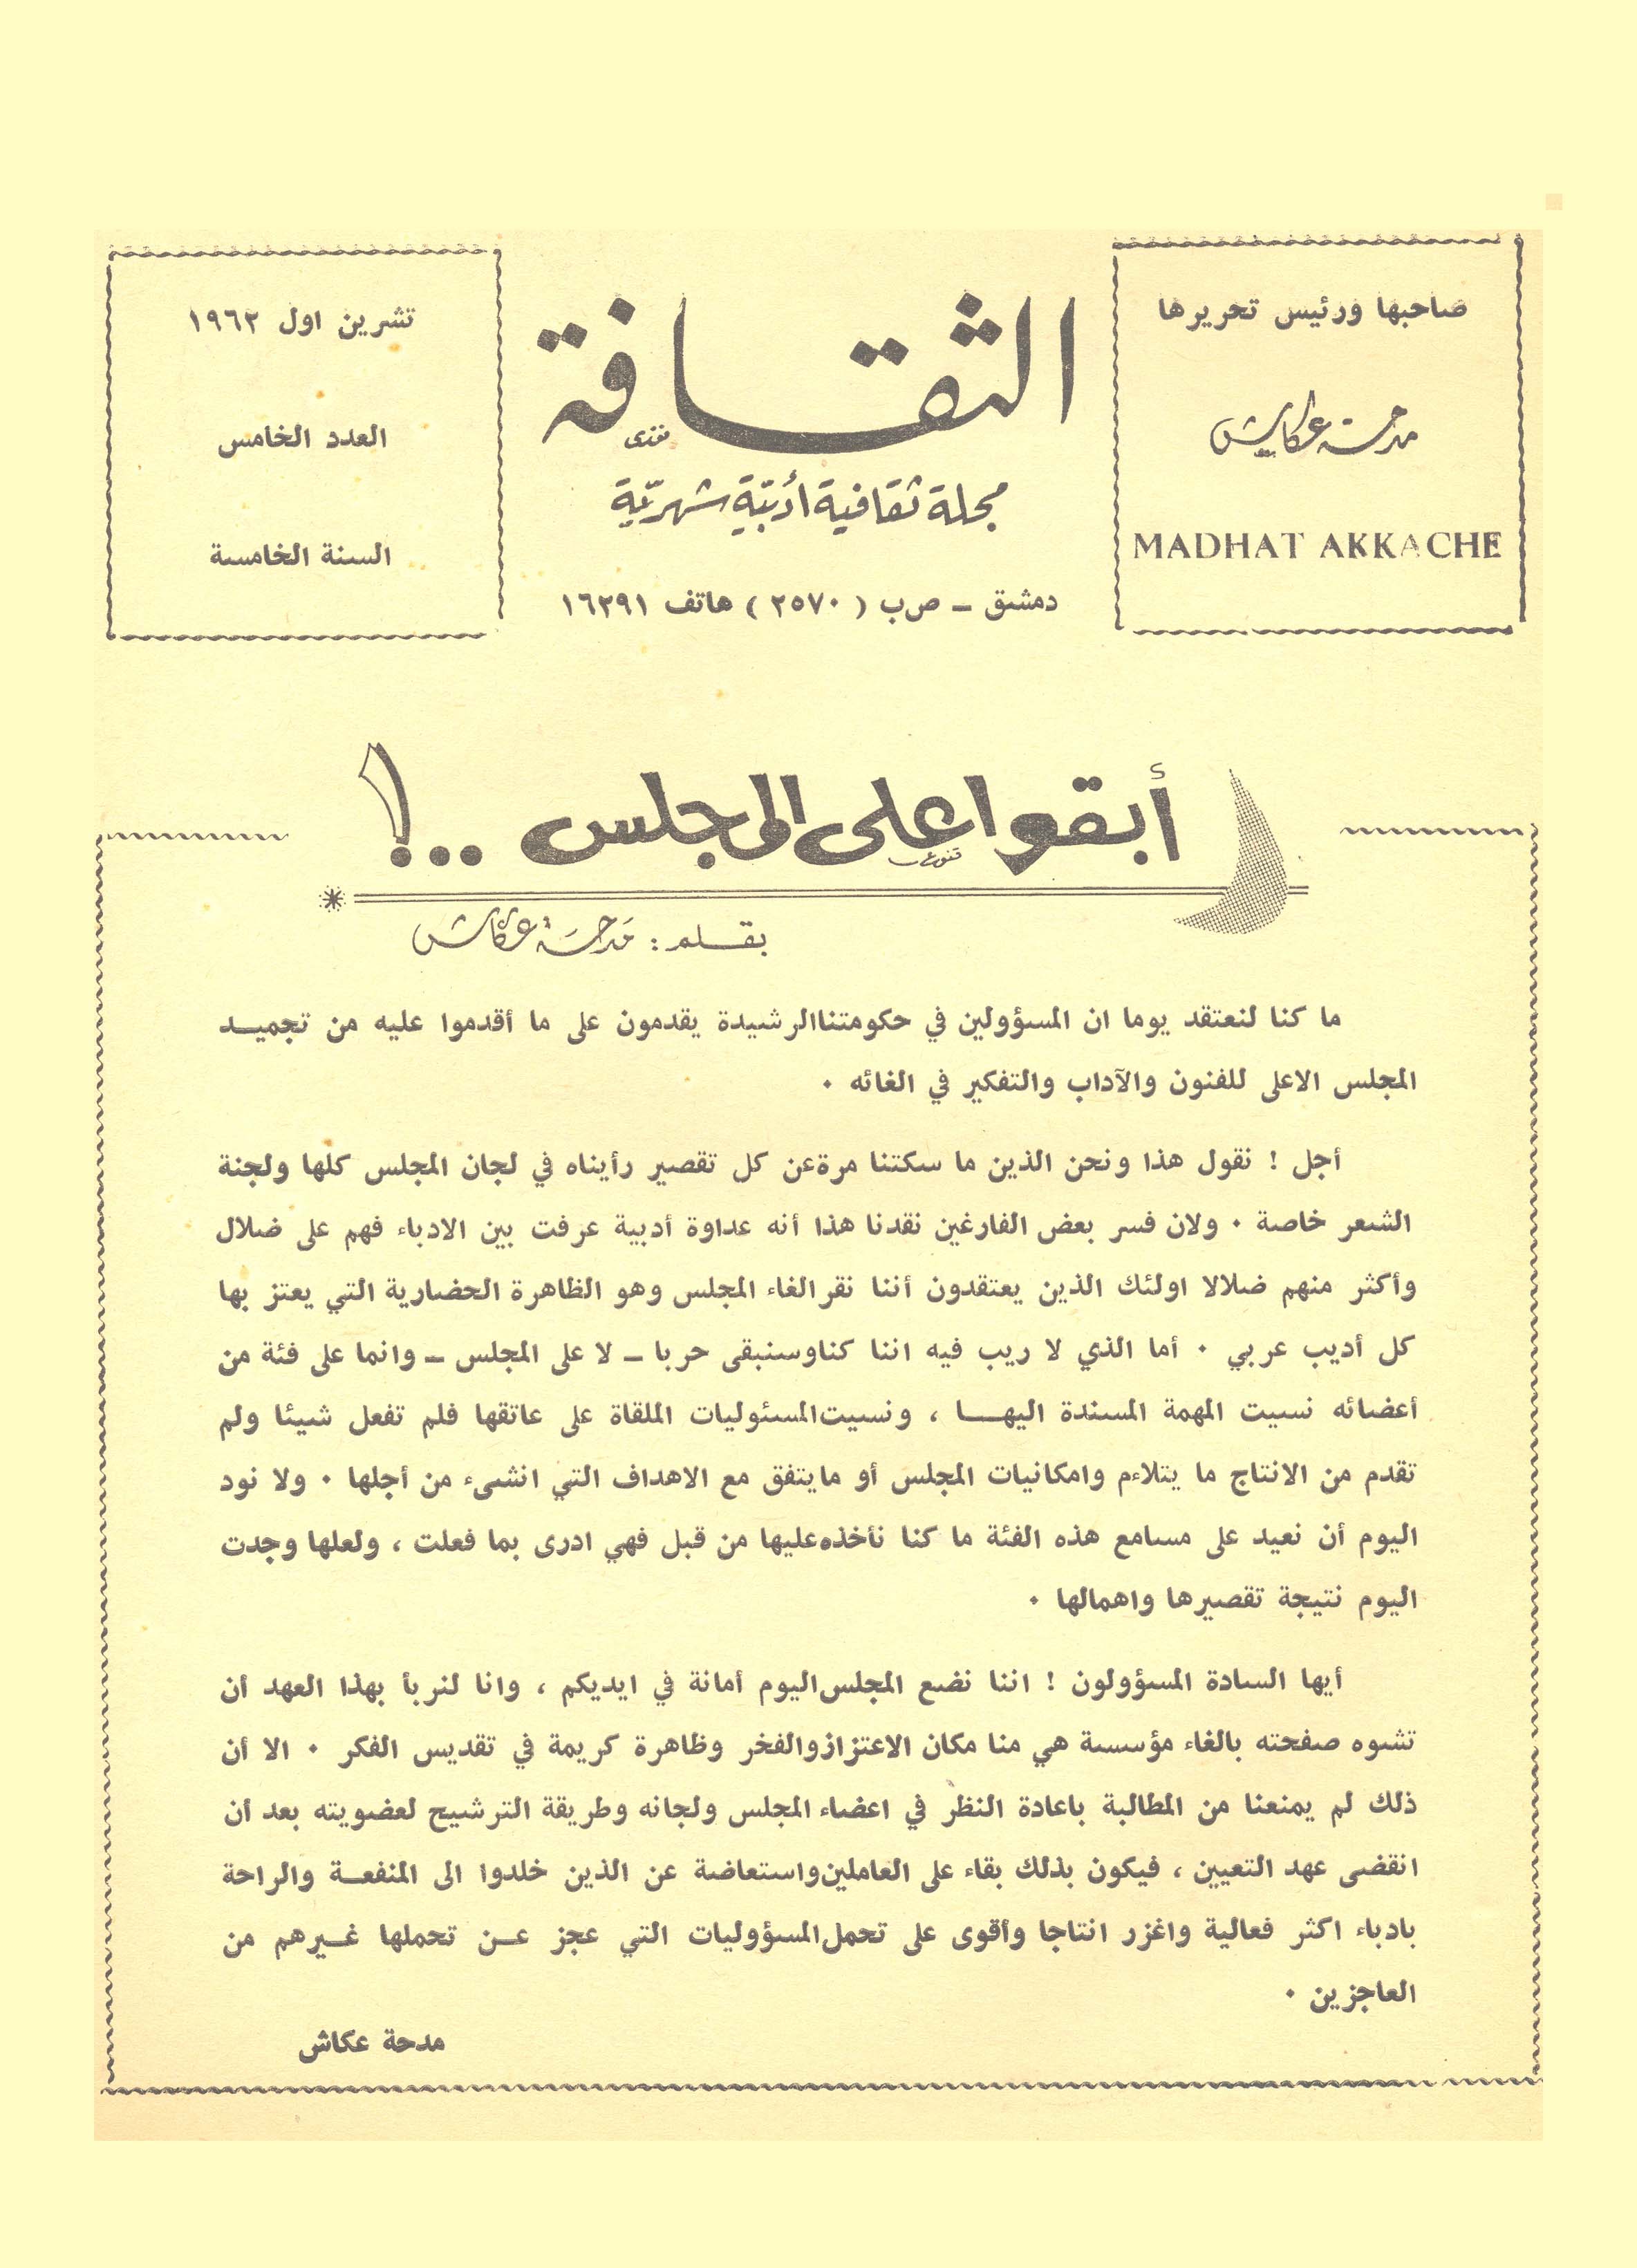 صاحبها ورئيس تحريرها
مدحة عكاش
MADHAT AKKACHE
الثقافة
مجلة ثقافية أدبيّة شهريّة
دمشق ــ ص.ب ( ٢٥٧٠ ) هاتف ١٦٢٩١
تشرين اول ١٩٦٢
العدد الخامس
السنة الخامسة
أبقوا على المجلس ..!
بقلم : مدحة عكاش
ما كنا لنعتقد يوما ان المسؤولين في حكومتنا الرشيدة يقدمون على ما أقدموا عليه من تجميـــد
المجلس الاعلى للفنون والآداب والتفكير في الغائه ٠
أجل ! نقول هذا ونحن الذين ما سكتنا مرة عن كل تقصير رأيناه في لجان المجلس كلها ولجنة
الشعر خاصة ٠ ولان فسر بعض الفارغين نقدنا هذا أنه عداوة أدبية عرفت بين الادباء فهم على ضلال
وأكثر منهم ضلالا اولئك الذين يعتقدون أننا نقر الغاء المجلس وهو الظاهرة الحضارية التي يعتز بها
كل أديب عربي ٠ أما الذي لا ريب فيه اننا كنا وسنبقى حربا ــ لا على المجلس ــ وانما على فئة من
أعضائه نسيت المهمة المسندة اليهـــا ، ونسيت المسئوليات الملقاة على عاتقها فلم تفعل شيئا ولم
تقدم من الانتاج ما يتلاءم وامكانيات المجلس أو ما يتفق مع الاهداف التي انشىء من أجلها ٠ ولا نود
اليوم أن نعيد على مسامع هذه الفئة ما كنا نأخذه عليها من قبل فهي ادرى بما فعلت ، ولعلها وجدت
اليوم نتيجة تقصيرها واهمالها ٠
أيها السادة المسؤولون ! اننا نضع المجلس اليوم أمانة في ايديكم ، وانا لنربأ بهذا العهد أن
تشوه صفحته بالغاء مؤسسة هي منا مكان الاعتزاز والفخر وظاهرة كريمة في تقديس الفكر ٠ الا أن
ذلك لم يمنعنا من المطالبة باعادة النظر في اعضاء المجلس ولجانه وطريقة الترشيح لعضويته بعد أن
انقضى عهد التعيين ، فيكون بذلك بقاء على العاملين واستعاضة عن الذين خلدوا الى المنفعــة والراحة
بادباء اكثر فعالية واغزر انتاجا وأقوى على تحمل المسؤوليات التي عجز عــن تحملها غــيرهم من
العاجزين ٠
مدحة عكاش